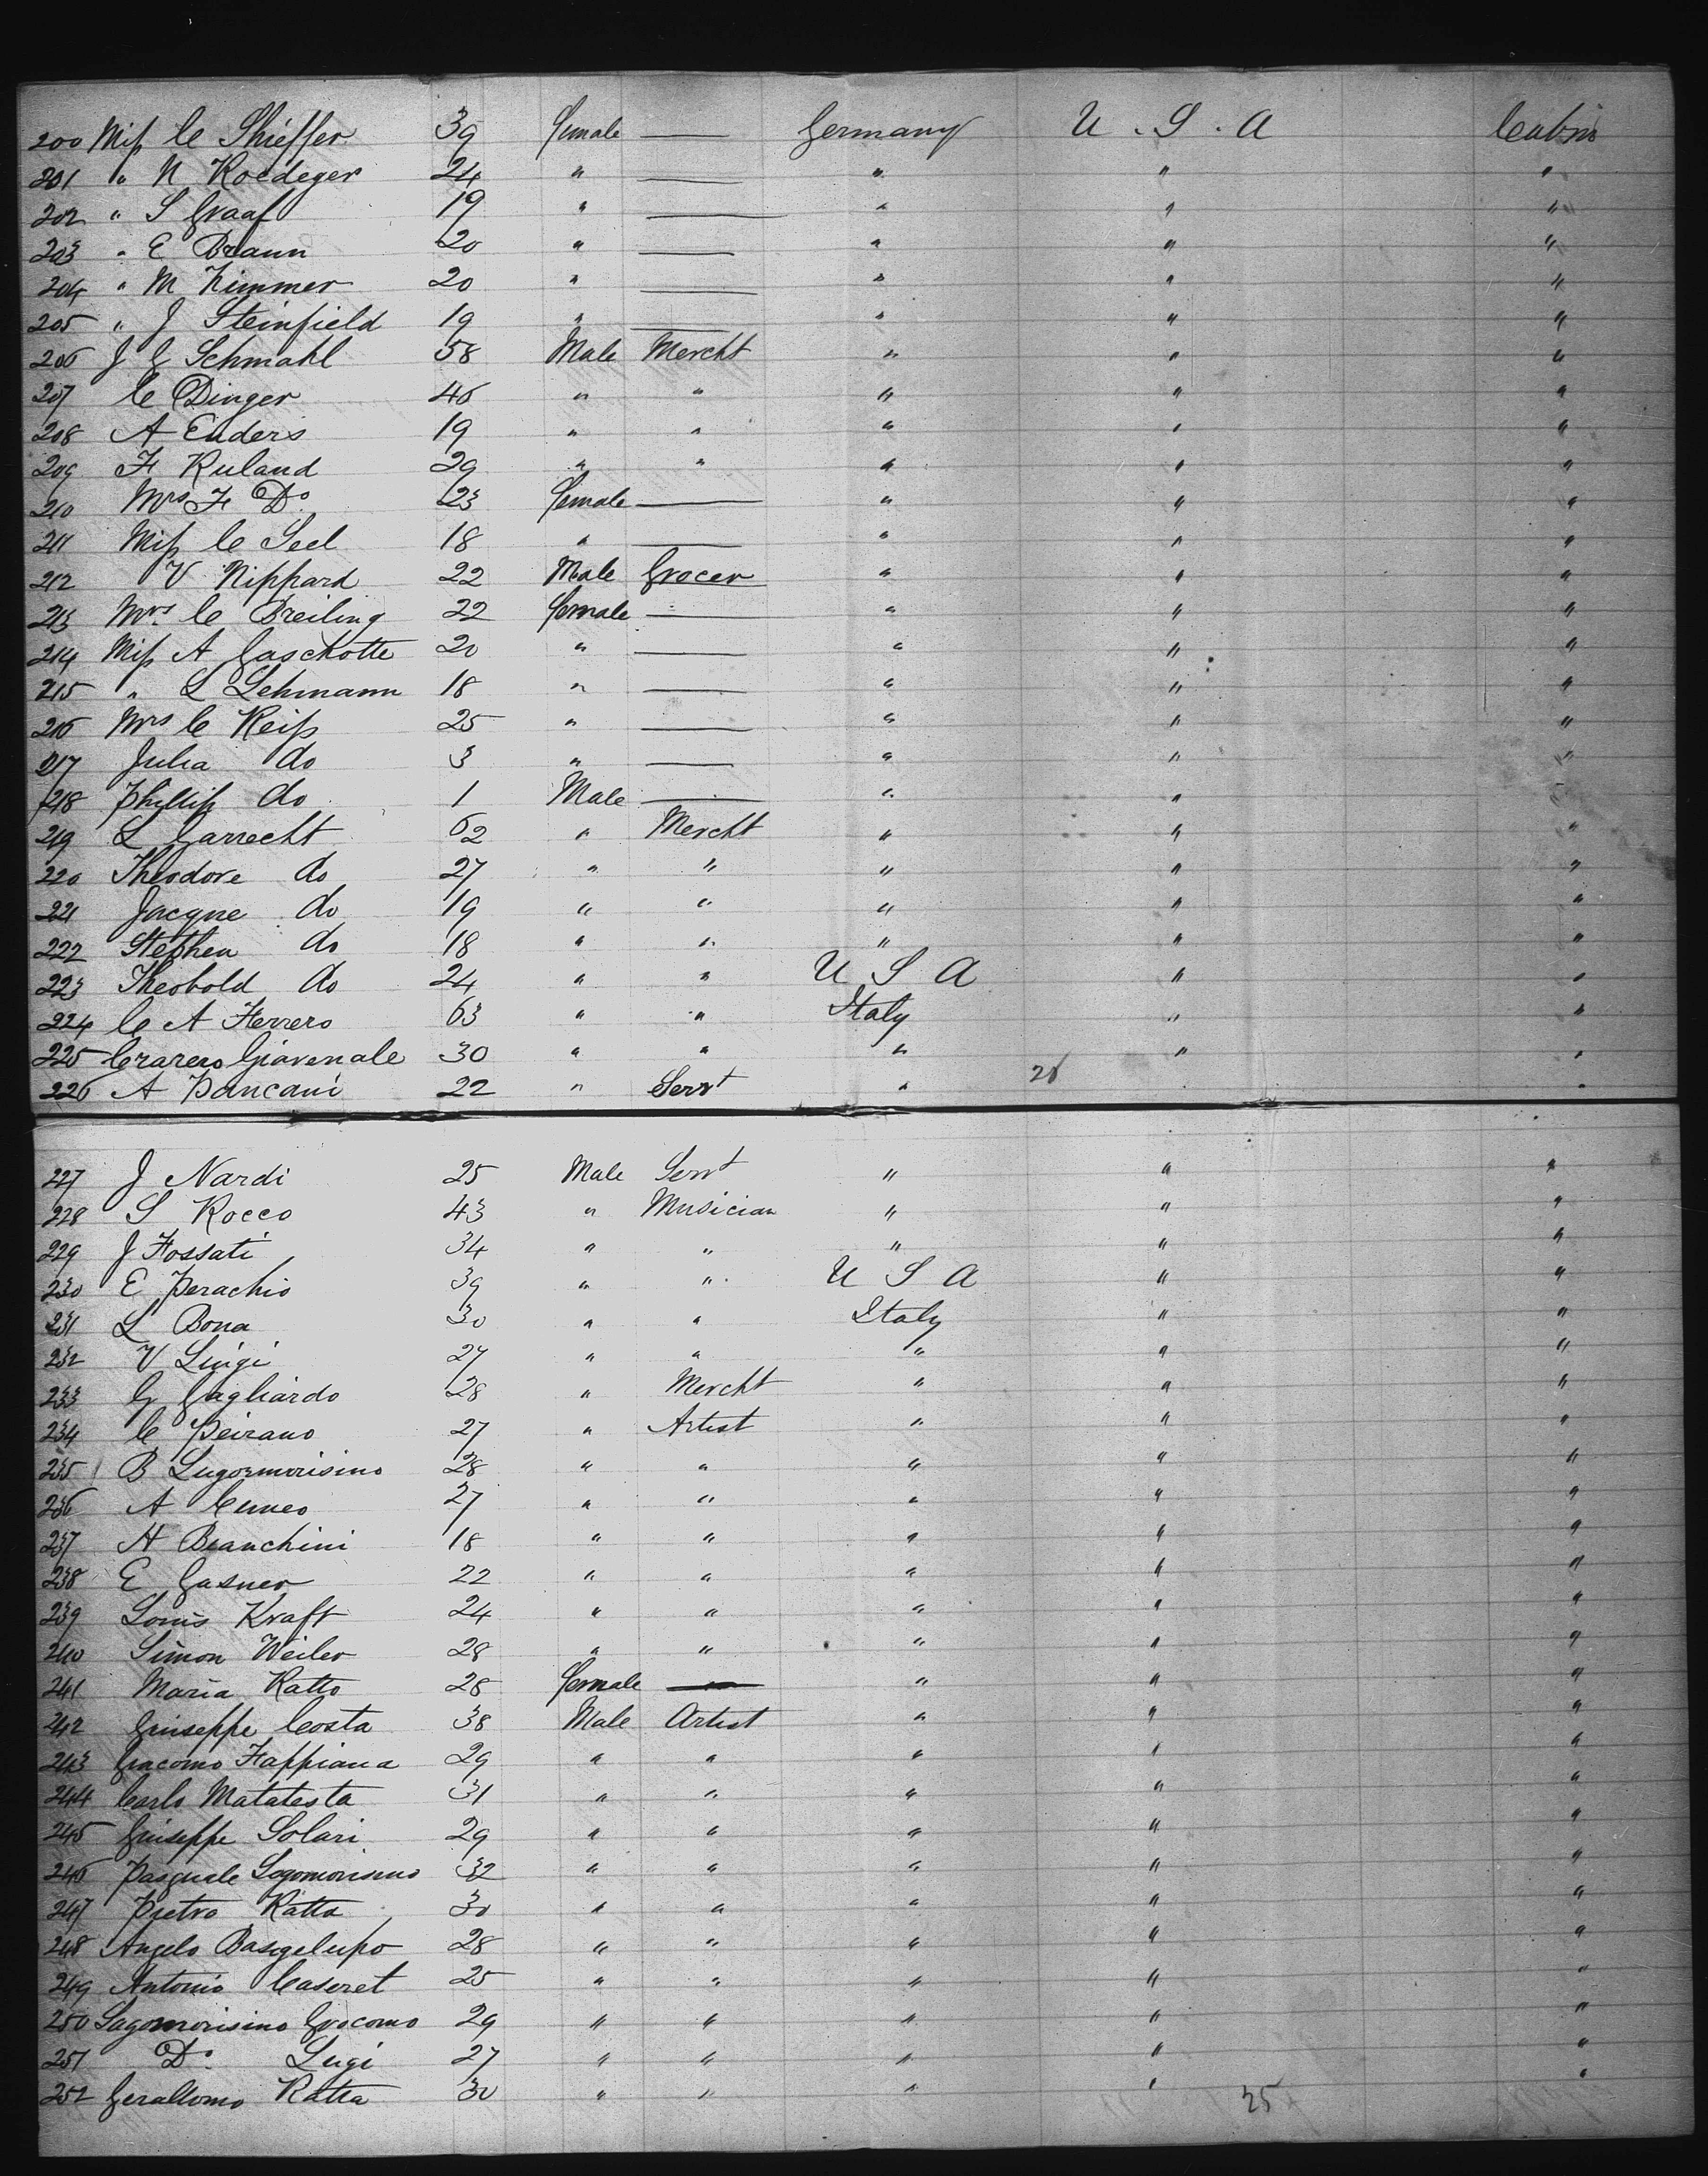 200 Miss C Shieffer 39 female — Germany U.S.A Cabin
201 " N Roedeger 24 " — " " "
202 " S Graaf 19 " — " " "
203 " E Braun 20 " — " " "
204 " M Zimmer 20 " — " " "
205 " J Steinfield 19 " — " " "
206 J G Schmahl 58 Male Mercht " " "
207 C Dinger 46 " " " " "
208 A Enders 19 " " " " "
209 F Ruland 29 " " " " "
210 Mrs F Do 23 female — " " "
211 Miss C Seel 18 " — " " "
212 V Nippard 22 Male Grocer " " "
213 Mrs C Breiling 22 female — " " "
214 Miss A Gaschotte 20 " — " " "
215 " L Lehmann 18 " — " " "
216 Mrs C Reiss 25 " — " " "
217 Julia do 3 " — " " "
218 Phillip do 1 Male — " " "
219 L Garrecht 62 " Mercht " " "
220 Theodore do 27 " " " " "
221 Jacque do 19 " " " " "
222 Stephen do 18 " " " " "
223 Theobold do 24 " " U S A " "
224 C A Ferrero 63 " " Italy " "
225 Crarero Giavenale 30 " " " " "
226 A Pancani 22 " Servt " 26 "
227 J Nardi 25 Male Servt " " "
228 S Rocco 43 " Musician " " "
229 J Fossati 34 " " " " "
230 E Perachio 39 " " U S A " "
231 L Bona 30 " " Italy " "
232 V Luigi 27 " " " " "
233 G Gagliardo 28 " Mercht " " "
234 C Peirano 27 " Artist " " "
235 B Lugormorisino 28 " " " " "
236 A Cuneo 27 " " " " "
237 A Bianchini 18 " " " " "
238 E Gasner 22 " " " " "
239 Louis Kraft 24 " " " " "
240 Simon Weiler 28 " " " " "
241 Maria Ratto 28 female — " " "
242 Giuseppe Costa 38 Male Artist " " "
243 Giacomo Fappiana 29 " " " " "
244 Carlo Matatesta 31 " " " " "
245 Giuseppe Solari 29 " " " " "
246 Pasquale Lagomorisino 32 " " " " "
247 Pietro Ratta 30 " " " " "
248 Angelo Basigelupo 28 " " " " "
249 Antonio Caseret 25 " " " " "
250 Lagomorisino Giocomo 29 " " " " "
251 Do Lugi 27 " " " " "
252 Gerallomo Ratta 30 " " " " "
25